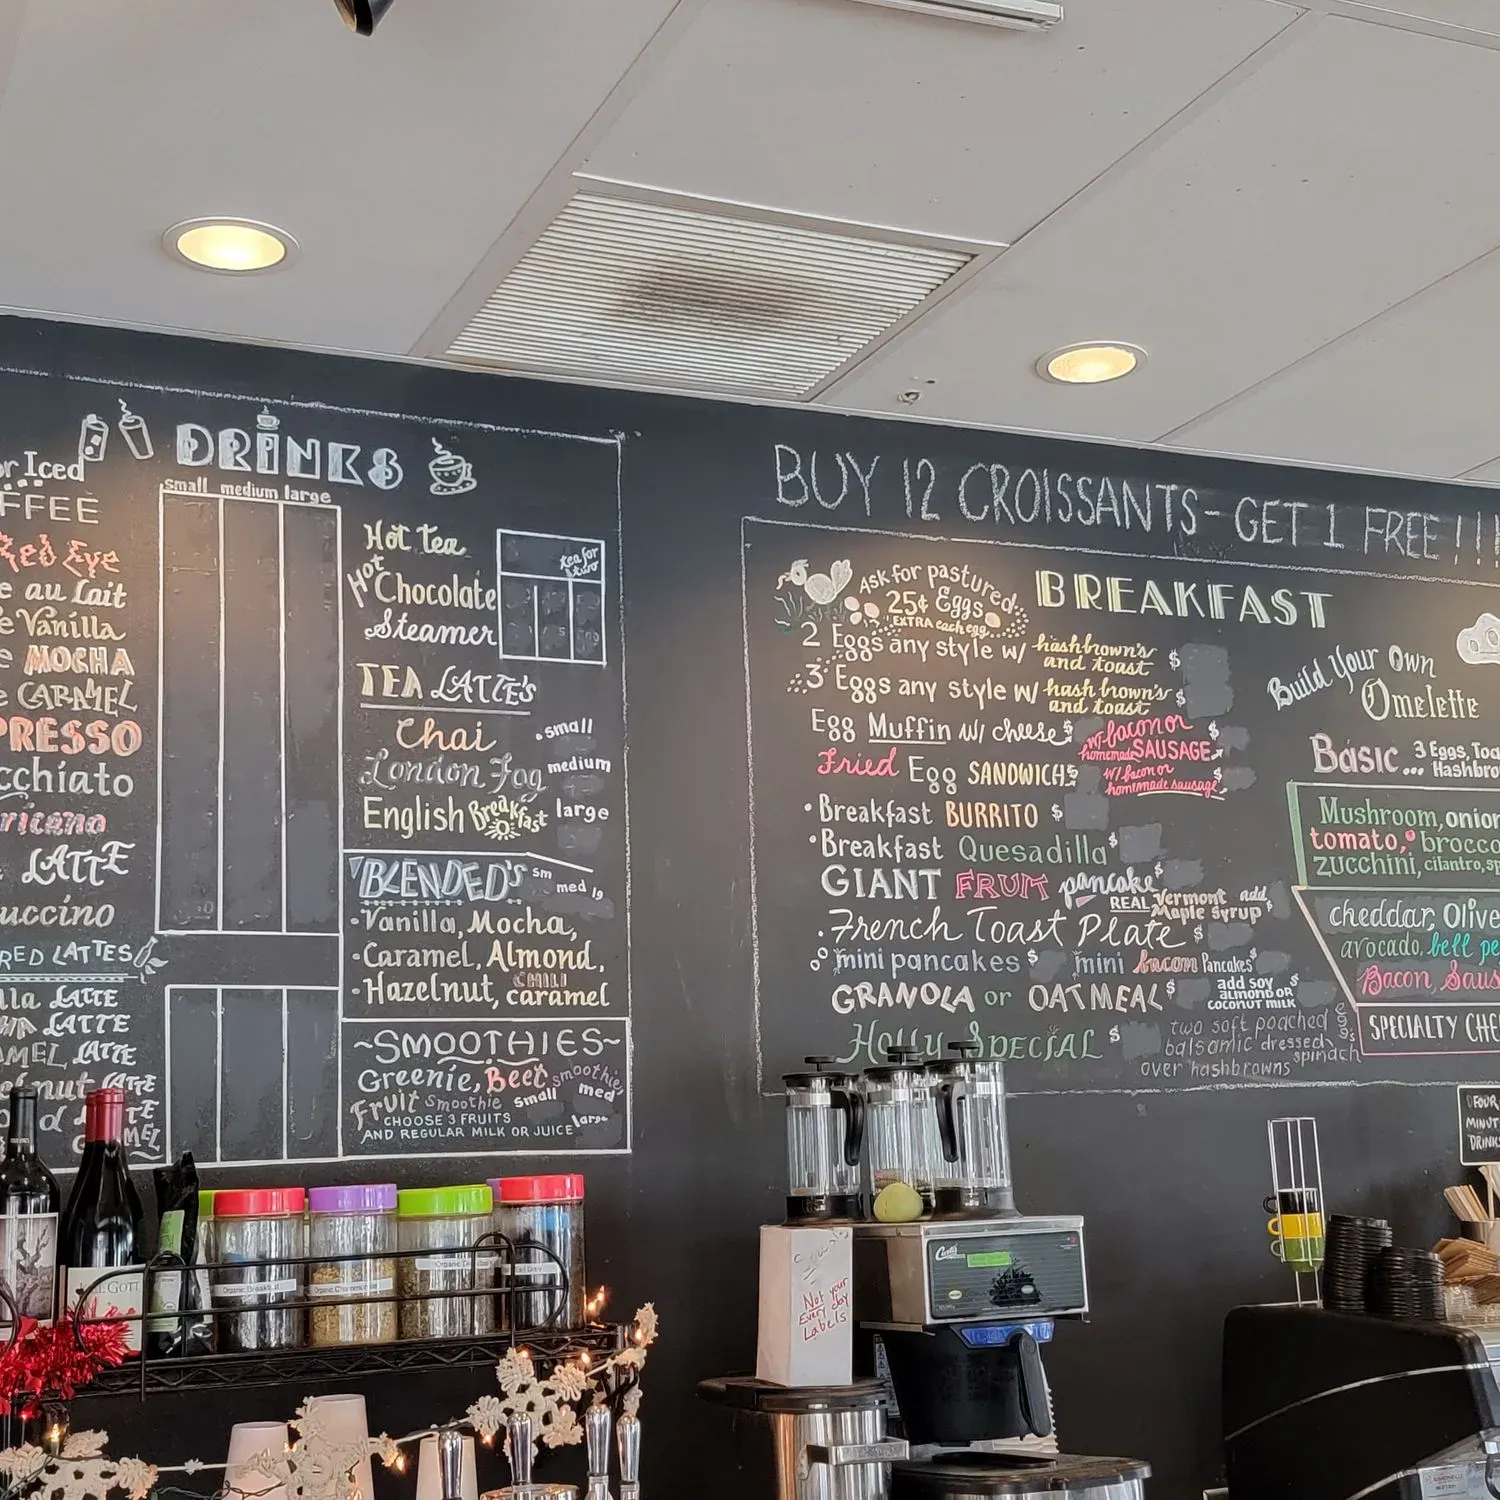 DRINKS
or Iced
small medium large
Red Eye
au Lait
Vanilla
MOCHA
CARAMEL
LATTE
LATTES
LATTE
LATTE
LATTE
LATTE
Hot Tea
tea for two
Hot Chocolate
Steamer
TEA LATTE'S
Chai
London Fog
English Breakfast
small
medium
large
BLENDED'S sm med lg
Vanilla, Mocha,
Caramel, Almond,
Hazelnut, CHILI caramel
~SMOOTHIES~
Greenie, Beet smoothie,
Fruit Smoothie small med large
CHOOSE 3 FRUITS
AND REGULAR MILK OR JUICE
BUY 12 CROISSANTS - GET 1 FREE!!!
Ask for pastured
25¢ Eggs
EXTRA each egg
BREAKFAST
2 Eggs any style w/ hashbrown's and toast $
3 Eggs any style w/ hash brown's and toast $
Egg Muffin w/ cheese $ w/ bacon or homemade SAUSAGE $
Fried Egg SANDWICH $ w/ bacon or homemade sausage $
• Breakfast BURRITO $
• Breakfast Quesadilla $
GIANT FRUIT pancake $
REAL Vermont Maple Syrup add $
• French Toast Plate $
mini pancakes $ mini bacon Pancakes $
GRANOLA or OATMEAL $ add SOY ALMOND OR COCONUT MILK $
Holly SPECIAL $ two soft poached eggs
balsamic dressed spinach
over hashbrowns
Build Your Own
Omelette
Basic ... 3 Eggs,
Mushroom, onion
tomato, brocco
zucchini, cilantro,
cheddar, Olive
avocado, bell pe
Bacon, Saus
SPECIALTY CHE
FOUR
MINUT
DRINKS
Organic Breakfast
Not your
Every day
Labels
Curtis